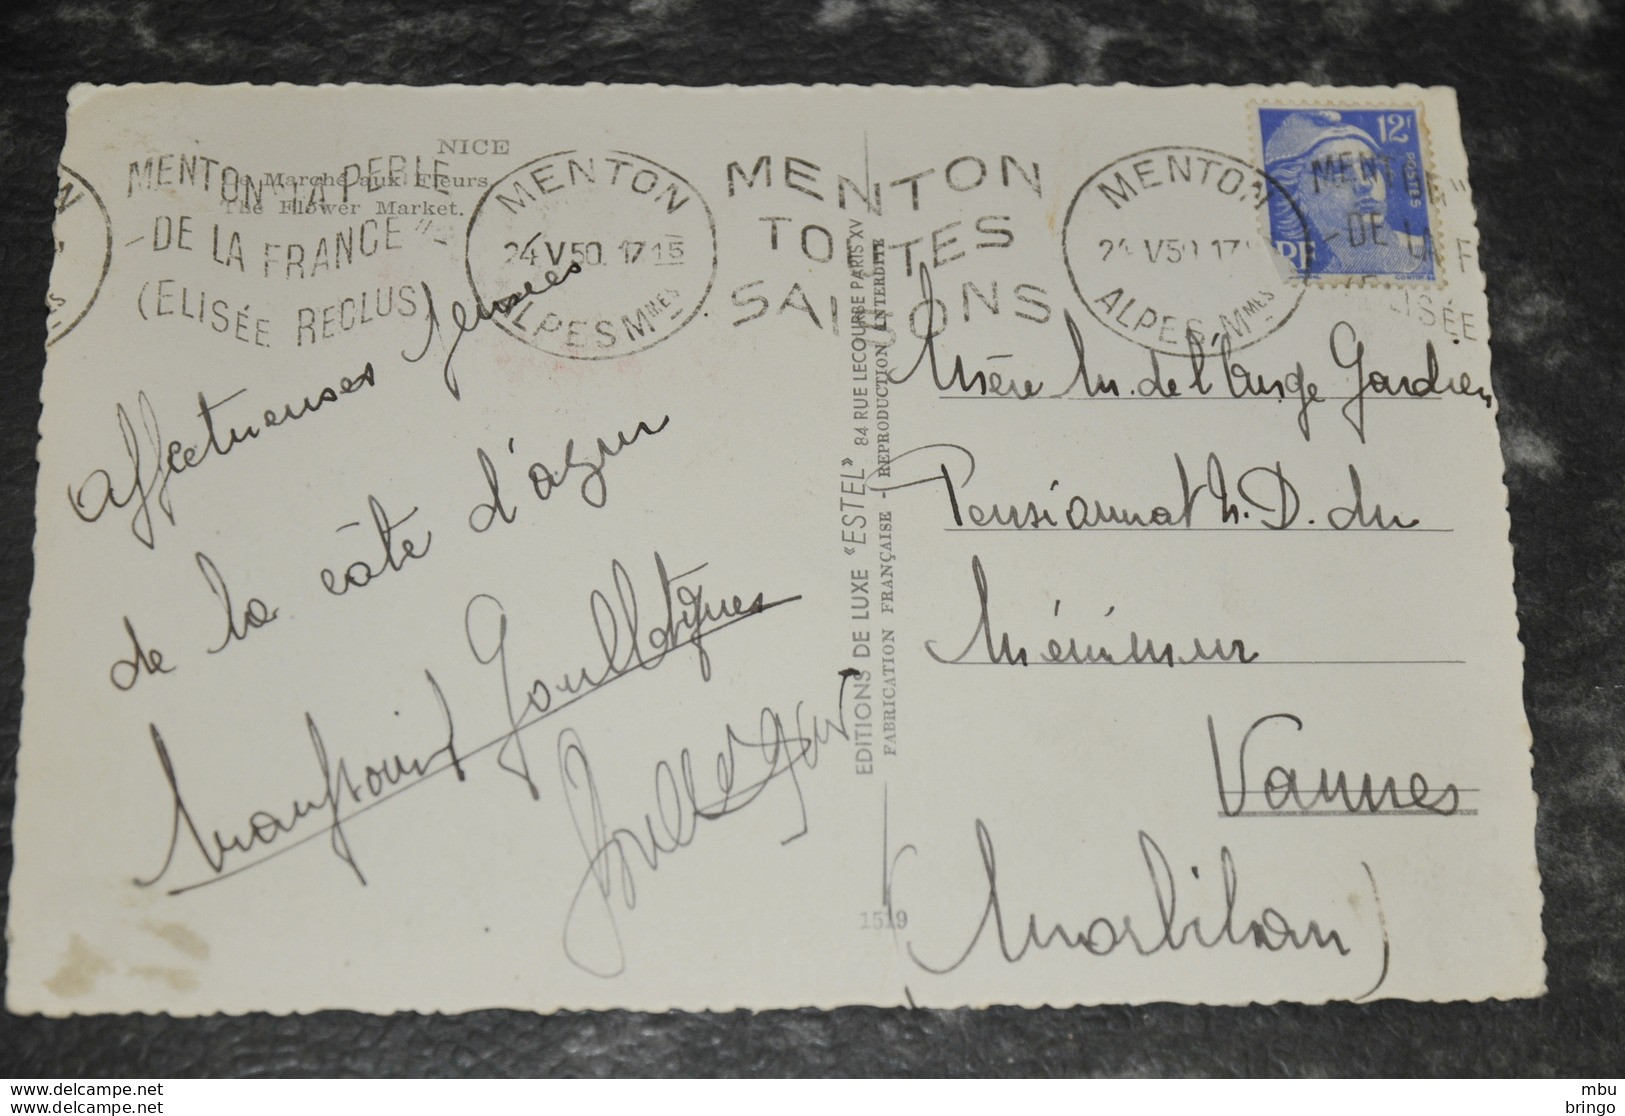 NICE
Le Marché aux Fleurs
The Flower Market.
MENTON LA PERLE
DE LA FRANCE"
(ELISÉE RECLUS)
MENTON
24 V 50. 17 15
ALPES Mmes
MENTON
TOUTES
SAISONS
MENTON
24 V 50 17
ALPES Mmes
12F
POSTES
RF
MENT
DE LA F
ELISÉE
Affectueuses pensées
de la côte d'azur
EDITIONS DE LUXE "ESTEL" 84 RUE LECOURBE PARIS XV
FABRICATION FRANÇAISE - REPRODUCTION INTERDITE
1519
Mère M. de l'Ange Gardien
Pensionnat N. D. du
Ménimur
Vannes
(Morbihan)
mbu
bringo